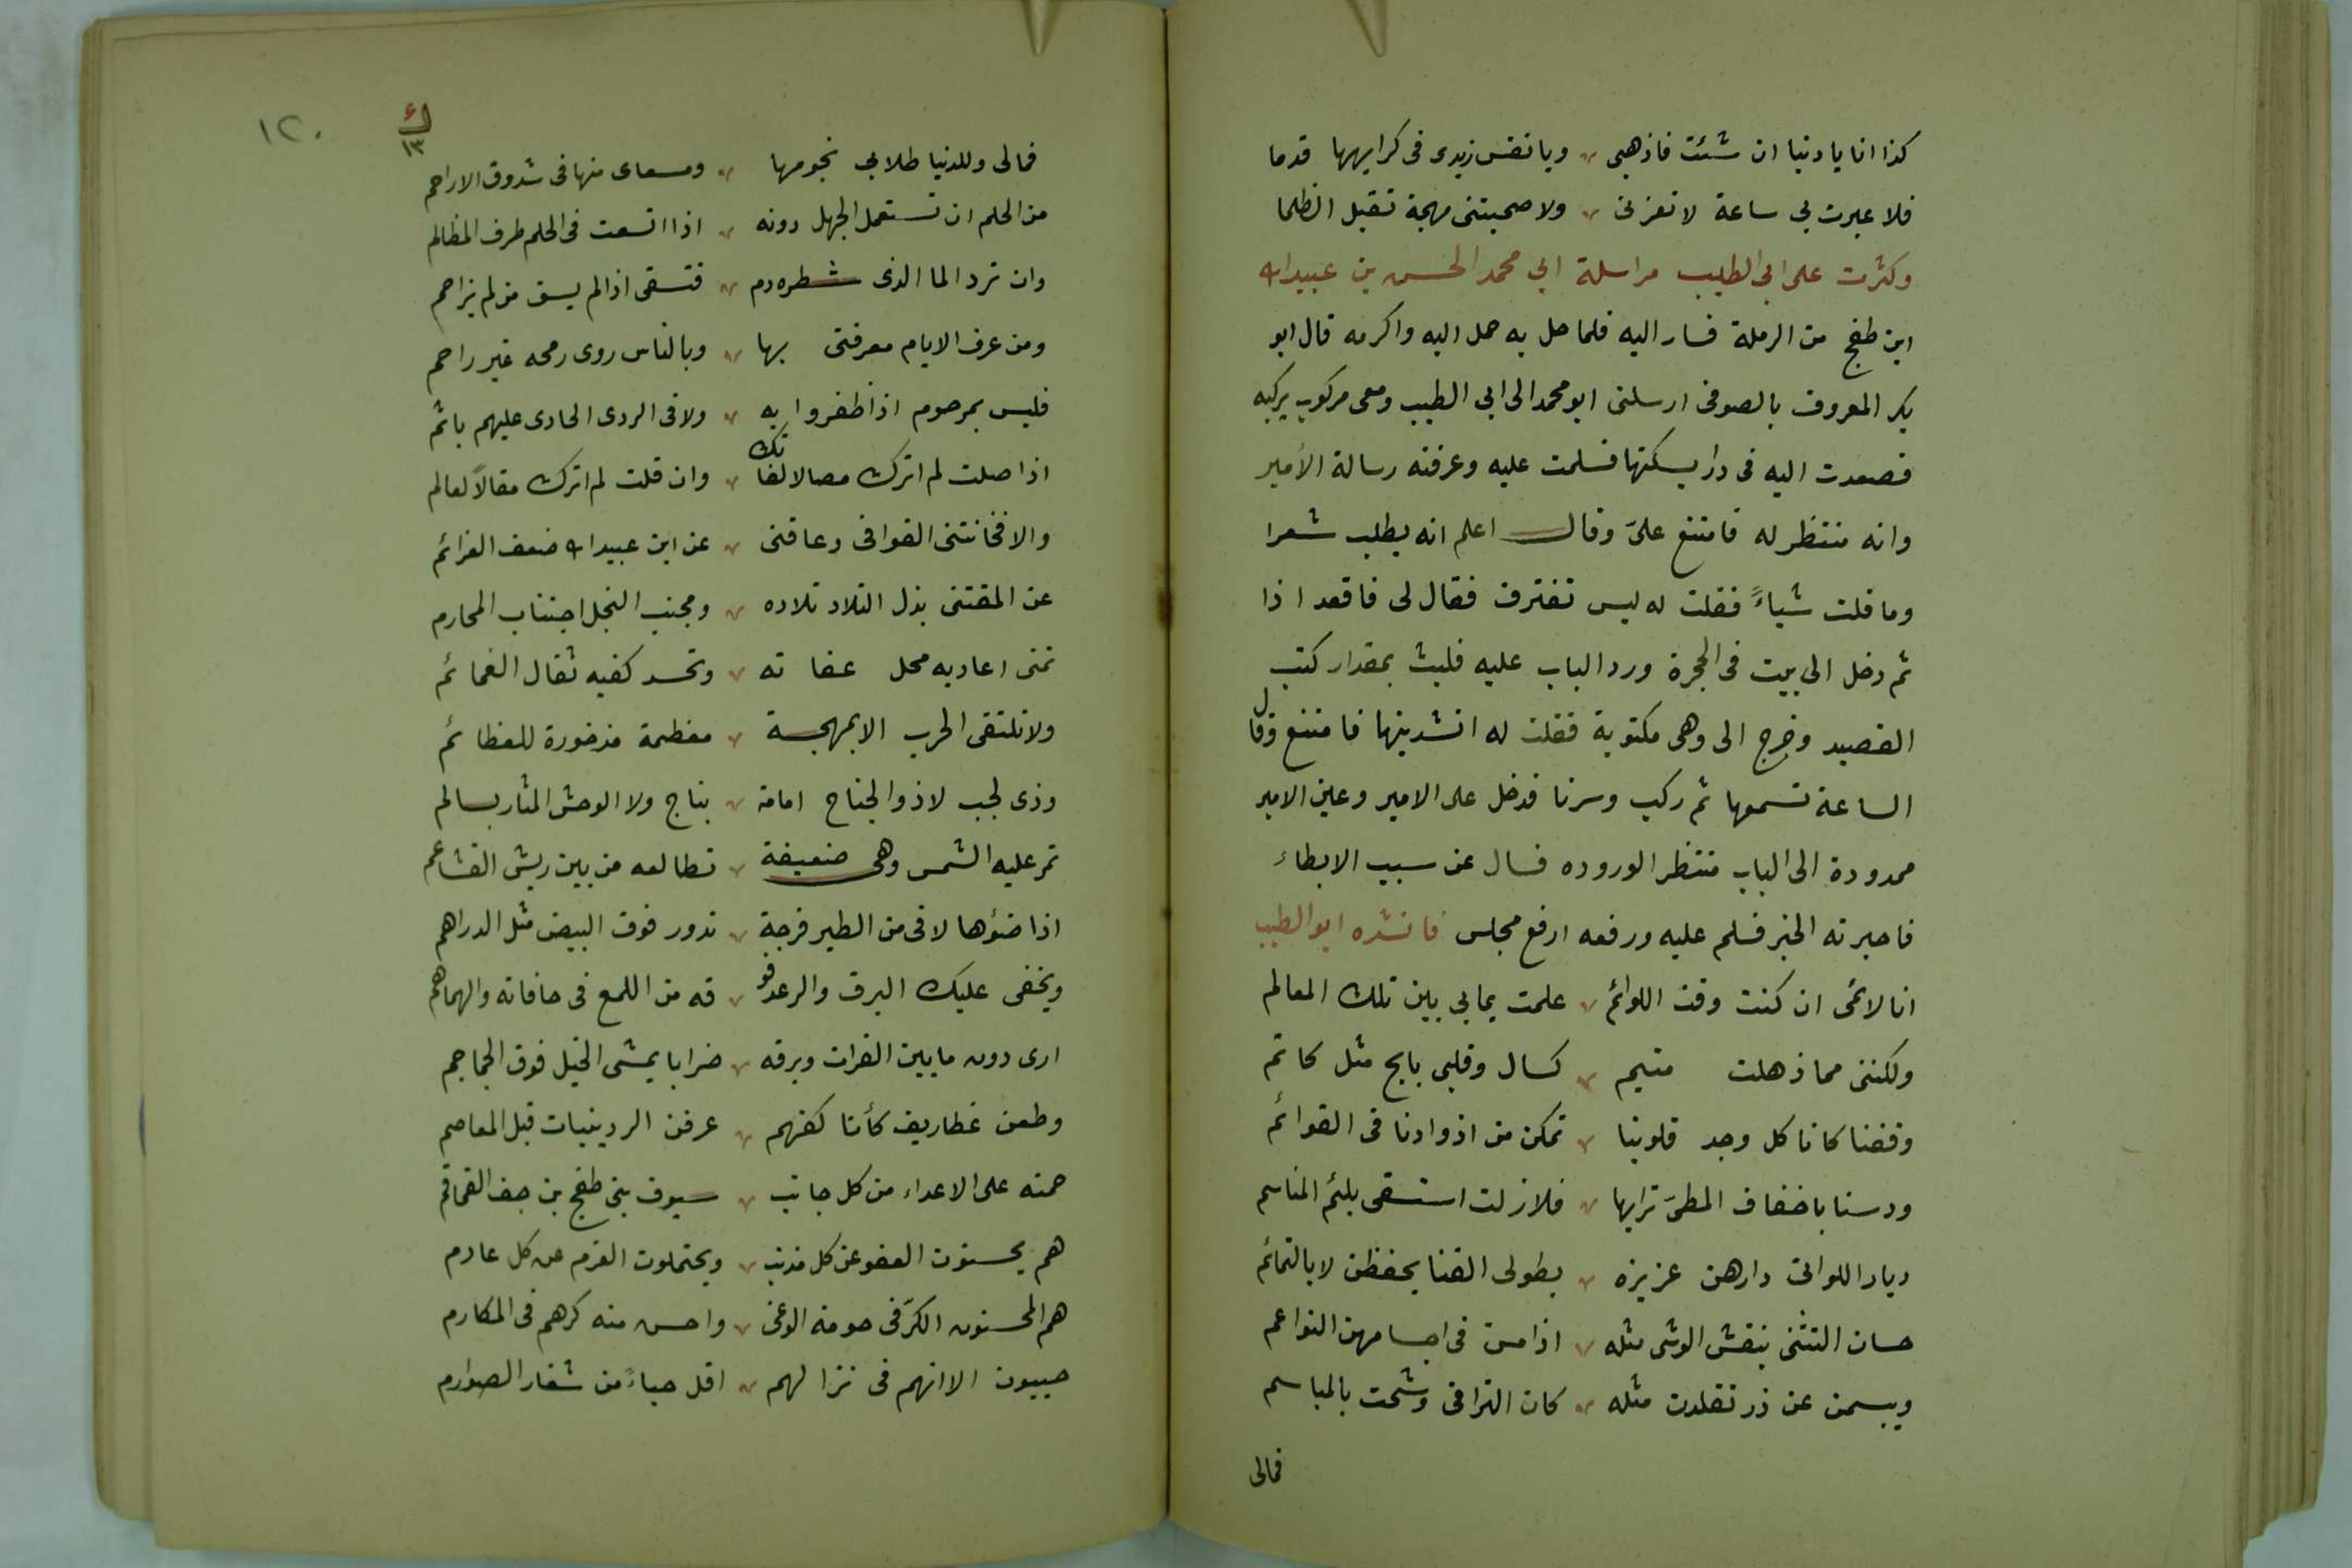 كذا انا يا دنيا ان شئت فاذهبى ويا نفس زيدى فى كرايهها قدما
فلا عبرت بى ساعة لا تعزنى ولا صحبتنى مهجة تقبل الظلما
وكثرت على ابى الطيب مراسلة ابى محمد الحسن بن عبيد الله
ابن طغج من الرملة فسار اليه فلما حل به حمل اليه واكرمه قال ابو
بكر المعروف بالصوفى ارسلنى ابو محمد الى ابى الطيب ومعى مركوب يركبه
فصعدت اليه فى دار يسكنها فسلمت عليه وعرفته رسالة الأمير
وانه منتظر له فامتنع علىّ وقال اعلم انه يطلب شعرا
وما قلت شياءً فقلت له ليس تفترق فقال لى فاقعد اذا
ثم دخل الى بيت فى الحجرة ورد الباب عليه فلبث بمقدار كتب
القصيد وخرج الى وهى مكتوبة فقلت له انشدينها فامتنع وقال
الساعة تسمعها ثم ركب وسرنا فدخل على الامير وعين الامير
ممدودة الى الباب منتظرا لوروده فسال عن سبب الابطاء
فاخبرته الخبر فسلم عليه ورفعه ارفع مجلس فانشده ابو الطيب
انا لائمى ان كنت وقت اللوائم علمت بما بى بين تلك المعالم
ولكننى مما ذهلت متيم كسال وقلبى بايح مثل كاتم
وقفنا كانا كل وجد قلوبنا تمكن من اذوادنا فى القوائم
ودسنا باخفاف المطىّ ترابها فلا زلت استسقى بلثم المناسم
ديار اللواتى دارهن عزيزه بطولى القنا يحفظن لا بالتمائم
حسان التثنى ينقش الوشى مثله اذا مسن فى اجسامهن النواعم
ويبسمن عن در تقلدن مثله كان التراقى وشحت بالمباسم
فمالى
١٢٠
١٣
فمالى وللدنيا طلابى نجومها ومسعاى منها فى شدوق الاراقم
من الحلم ان تستعمل الجهل دونه اذا اتسعت فى الحلم طرف المظالم
وان ترد الما الذى شطره دم فتسقى اذا لم يسق من لم يزاحم
ومن عرف الايام معرفتى بها وبالناس روى رمحه غير راحم
فليس بمرحوم اذا ظفروا به ولا فى الردى الجارى عليهم باثم
اذا صلت لم اترك مصالا لفاتك وان قلت لم اترك مقالاً لعالم
والا فخانتنى القوافى وعاقنى عن ابن عبيد الله ضعف العزائم
عن المقتنى بذل التلاد تلاده ومجنب البخل اجتناب المحارم
تمنى اعاديه محل عفاته وتحسد كفيه ثقال الغمائم
ولا تلتقى الحرب الا بمهجة معظمة مذخورة للعظائم
وذى لجب لا ذو الجناح امامه بناج ولا الوحش المثار بسالم
تمر عليه الشمس وهى ضعيفة تطالعه من بين ريش القشاعم
اذا ضوءها لاقى من الطير فرجة تدور فوق البيض مثل الدراهم
ويخفى عليك البرق والرعد فو قه من اللمع فى حافاته والهماهم
ارى دون ما بين الفرات وبرقه ضرابا يمشى الخيل فوق الجماجم
وطعن غطاريف كأنا كفهم عرفن الردينيات قبل المعاصم
حمته على الاعداء من كل جانب سيوف بنى طغج بن جف القماقم
هم يحسنون العفو عن كل مذنب ويحتملون الغرم عن كل غارم
هم المحسنون الكرّ فى حومة الوغى واحسن منه كرهم فى المكارم
حييون الا انهم فى نزالهم اقل حياءً من شفار الصوارم